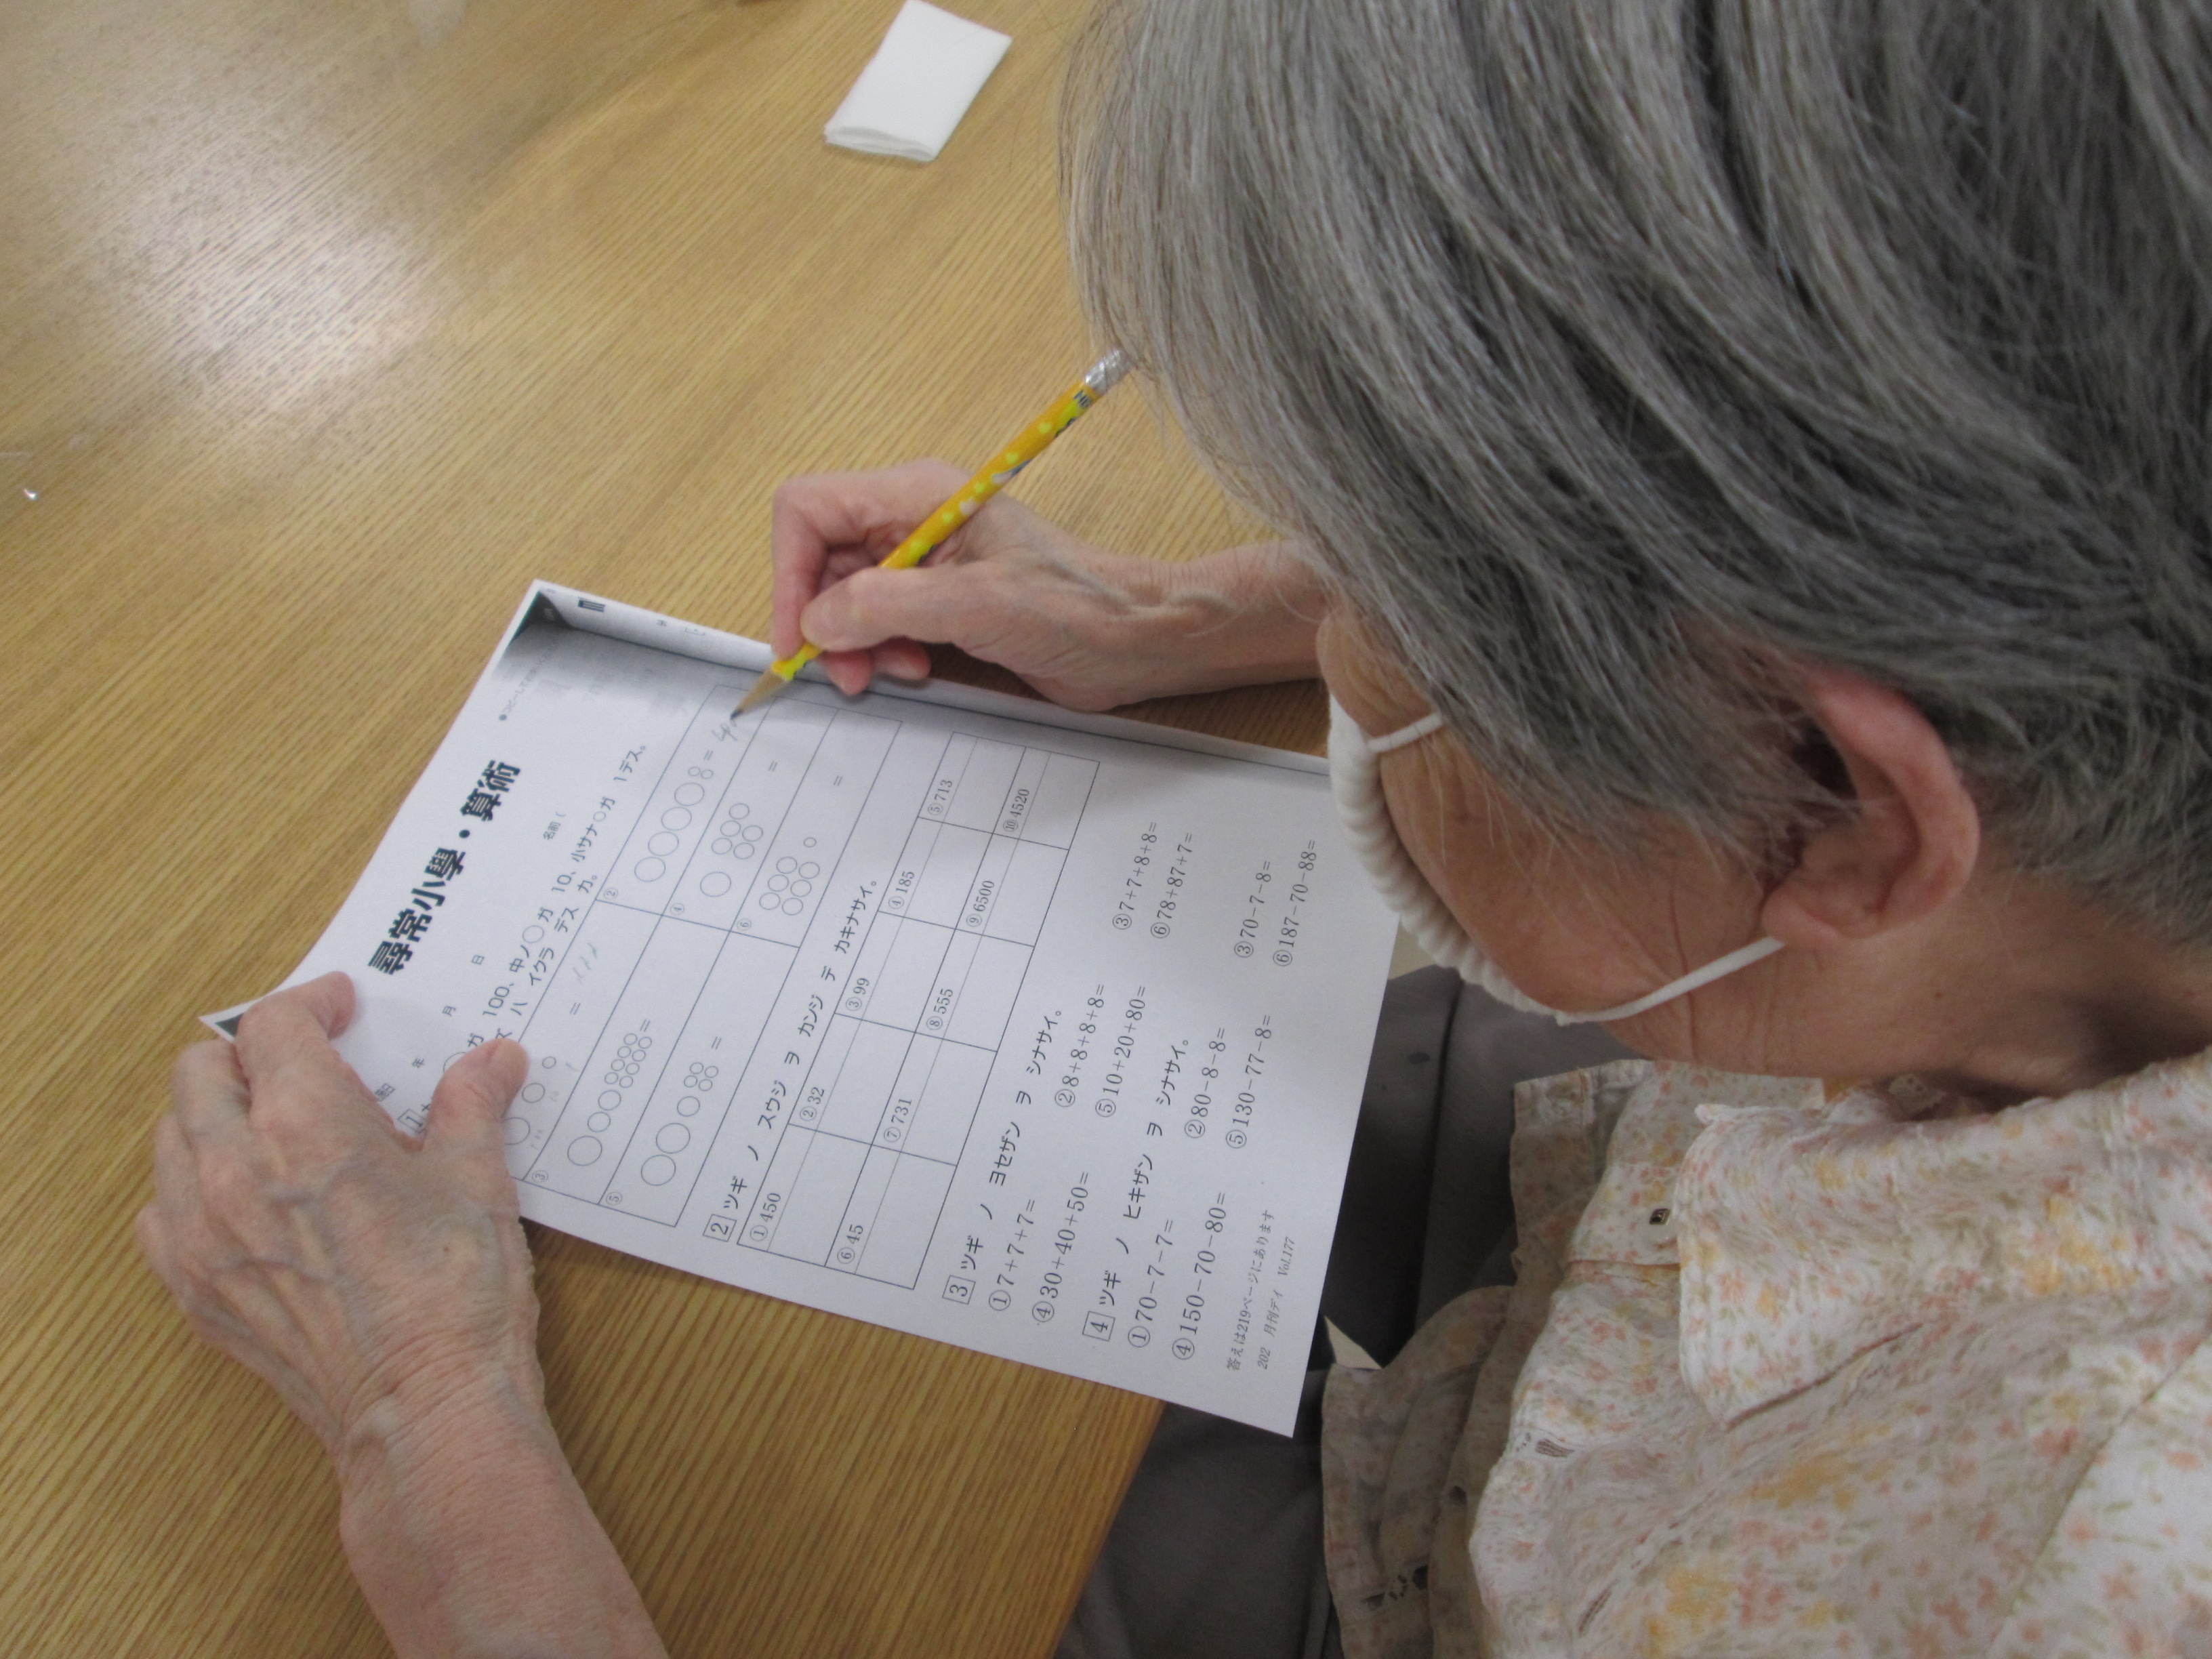 尋常小學・算術
年 月 日 名前（
ガ 100、中ノ○ガ 10、小サナ○ガ 1デス。
ハ イクラ デス カ。
= 111
② =
③ =
④ =
⑤ =
⑥ =
2 ツギ ノ スウジ ヲ カンジ デ カキナサイ。
①450 ②32 ③99 ④185 ⑤713
⑥45 ⑦731 ⑧555 ⑨6500 ⑩4520
3 ツギ ノ ヨセザン ヲ シナサイ。
①7+7+7= ②8+8+8+8= ③7+7+8+8=
④30+40+50= ⑤10+20+80= ⑥78+87+7=
4 ツギ ノ ヒキザン ヲ シナサイ。
①70-7-7= ②80-8-8= ③70-7-8=
④150-70-80= ⑤130-77-8= ⑥187-70-88=
答えは219ページにあります
202 月刊デイ Vol.177